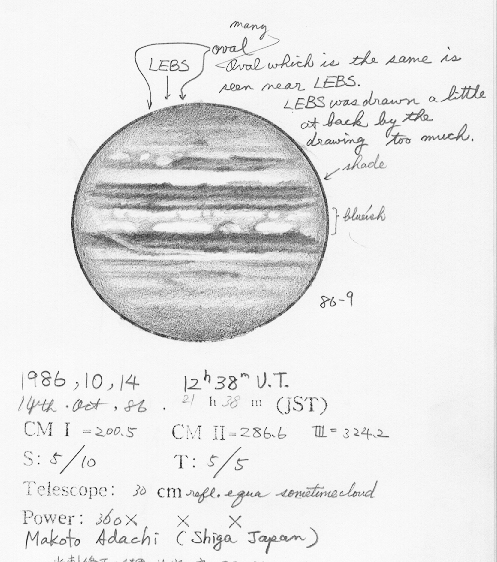 many
oval
LEBS
Oval which is the same is
seen near LEBS.
LEBS was drawn a little
at back by the
drawing too much.
shade
blueish
86-9
1986, 10, 14 12h 38m U.T.
14th. Oct. 86. 21 h 38 m (JST)
CM I =200.5 CM II=286.6 III= 324.2
S: 5/10 T: 5/5
Telescope: 30 cm refl. equa sometime cloud
Power: 360X X X
Makoto Adachi (Shiga Japan)